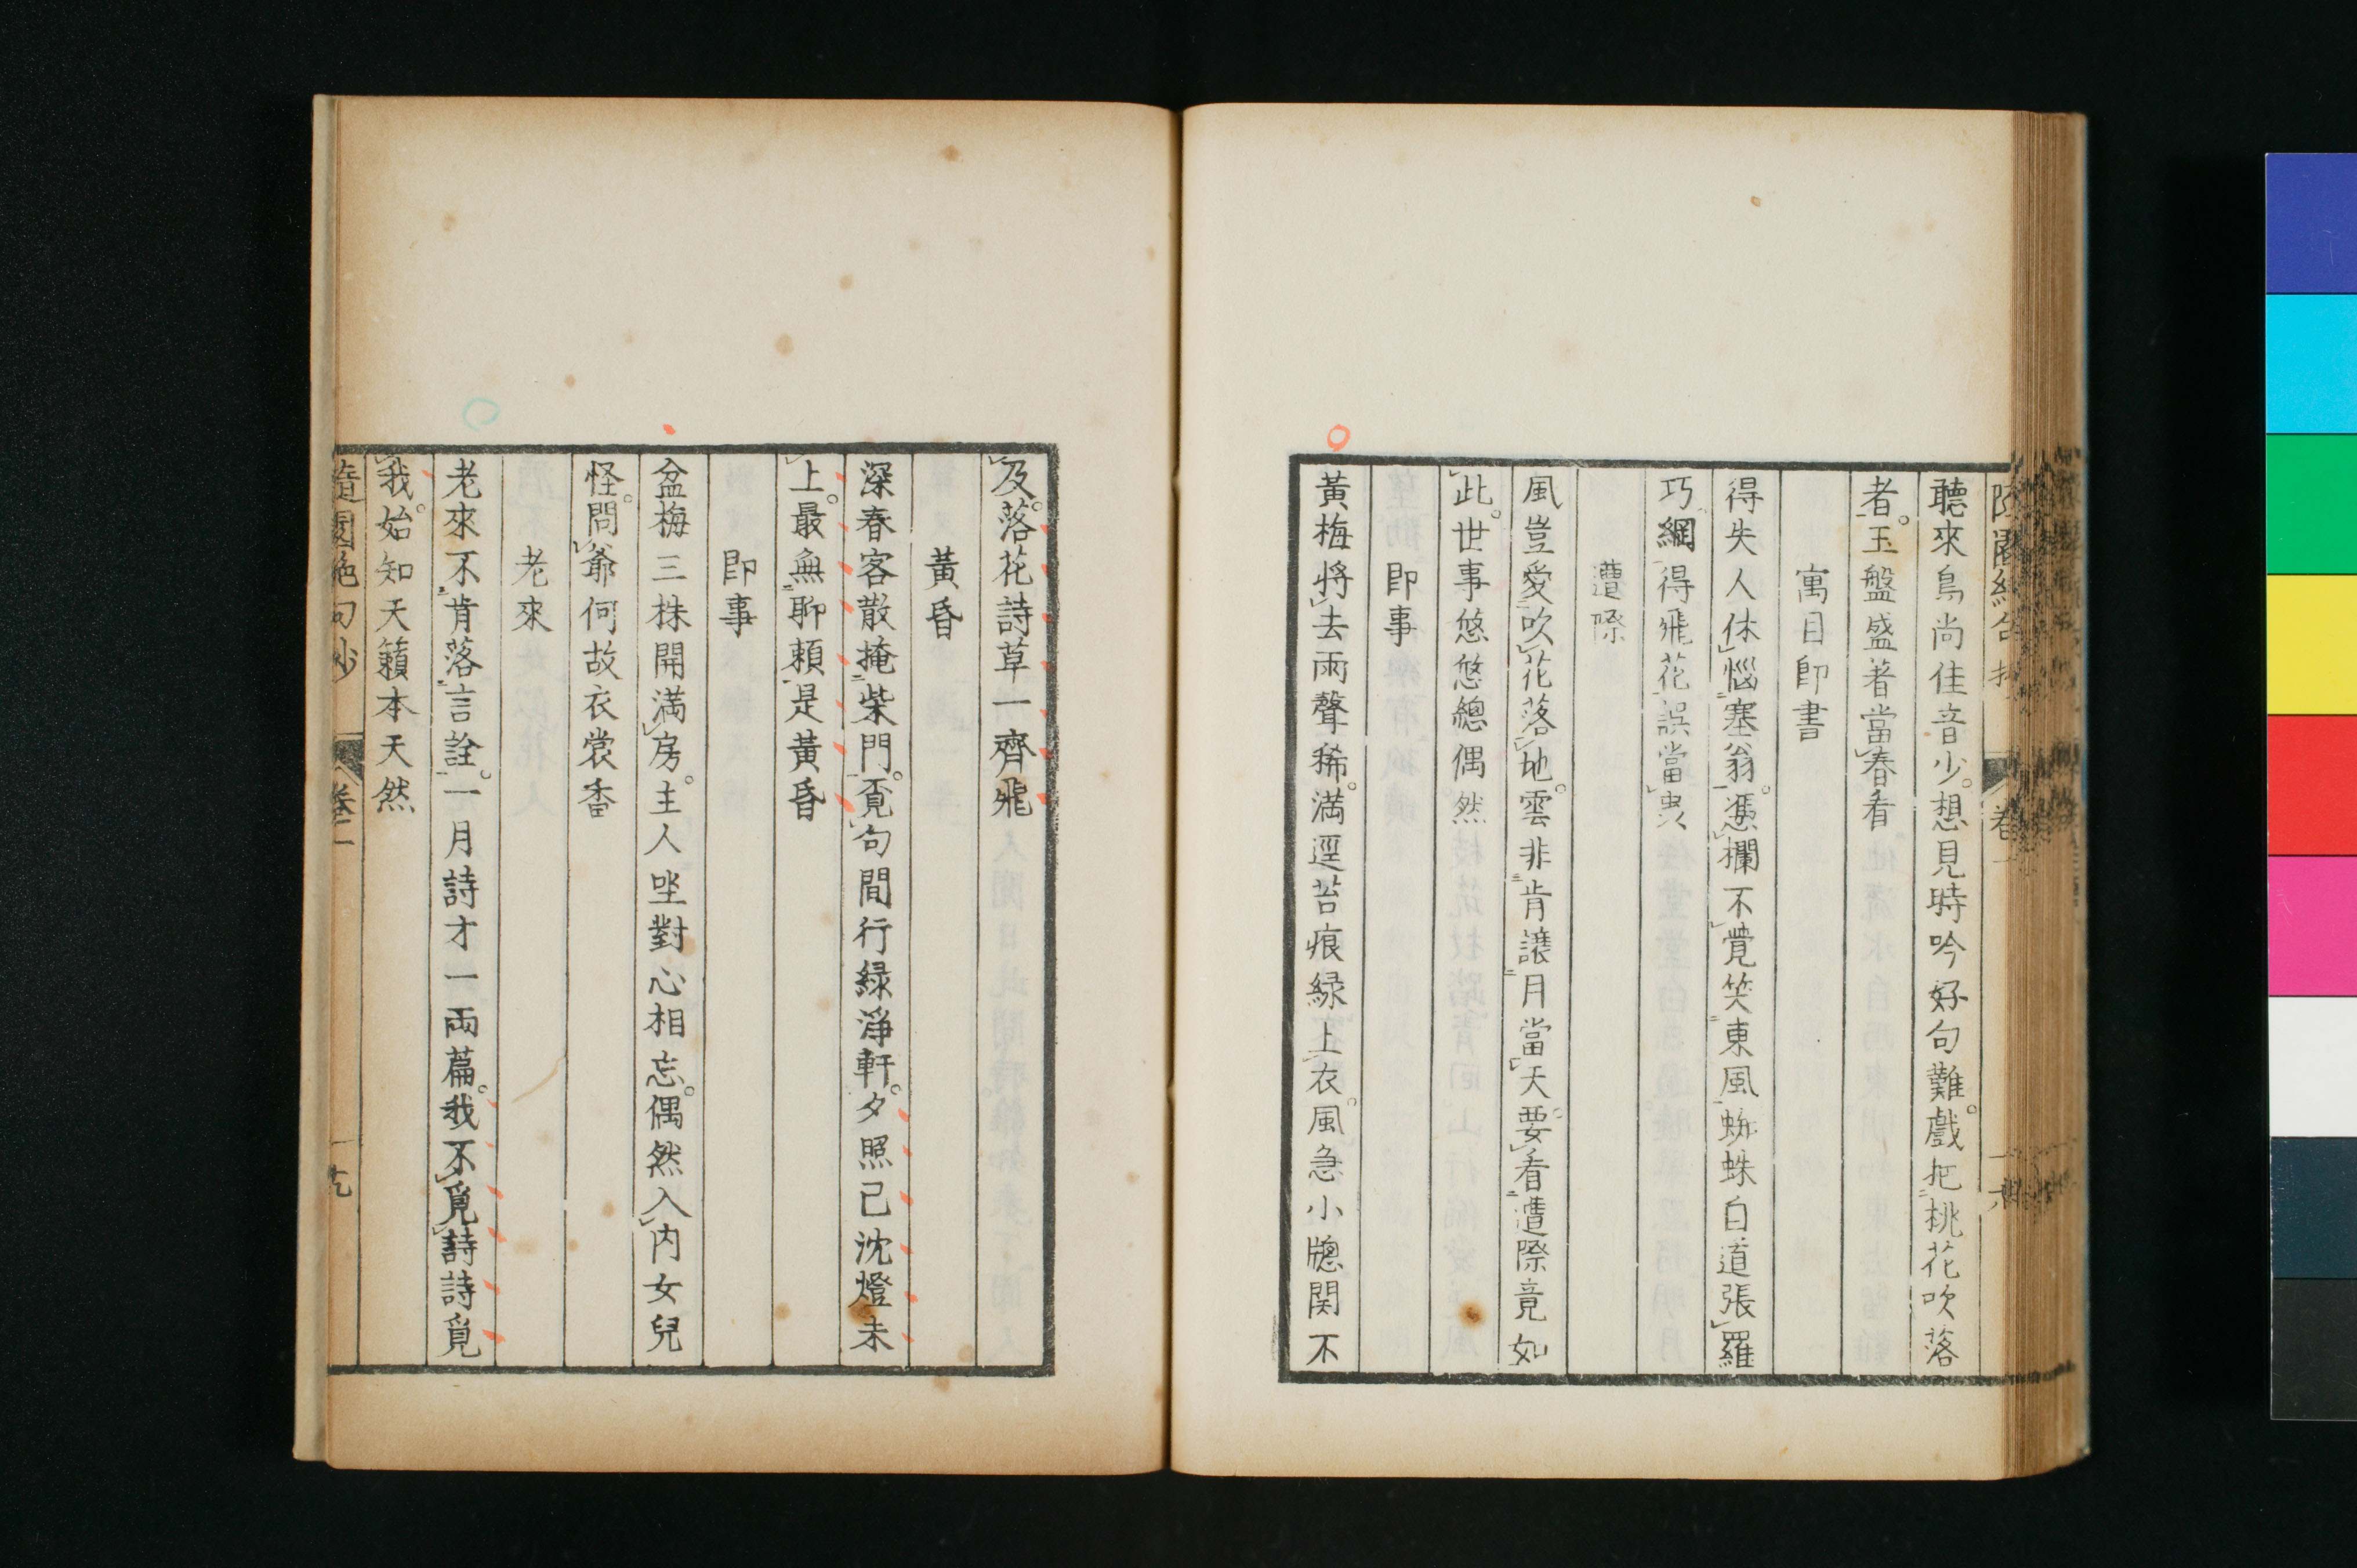 聽來鳥尚佳音少。想見時吟好句難。戲把桃花吹落
者。玉盤盛著當春看
寓目卽書
得失人休惱塞翁。憑欄不覺笑東風蜘蛛自道張羅
巧網得飛花誤當虫
遭際
風豈愛吹花落地。雲非肯讓月當天。要看遭際竟如
此。世事悠悠總偶然
卽事
黃梅將去雨聲稀。滿逕苔痕綠上衣。風急小牕関不
及。落花詩草一齊飛
黃昏
深春客散掩柴門。覓句閒行綠淨軒。夕照已沈燈未
上。最無聊賴是黃昏
卽事
盆梅三株開滿房。主人坐對心相忘。偶然入內女兒
怪。問爺何故衣裳香
老來
老來不肯落言詮。一月詩才一兩篇。我不覓詩詩覓
我。始知天籟本天然
隨園絶句抄 卷二